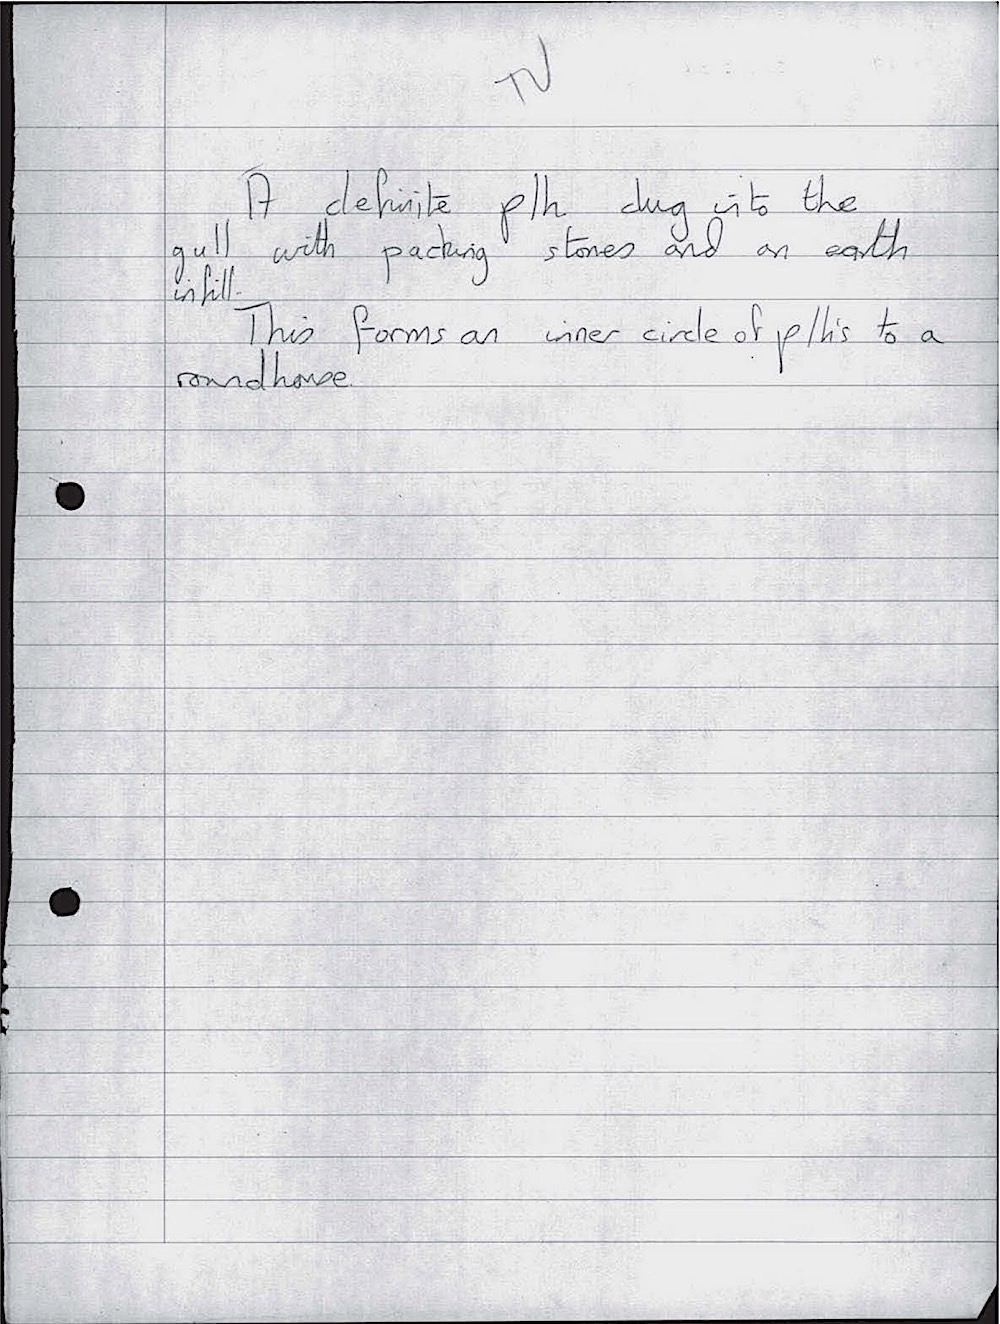 TV
A definite p/h dug into the
gull with packing stones and an earth
infill.
This forms an inner circle of p/h's to a
roundhouse.